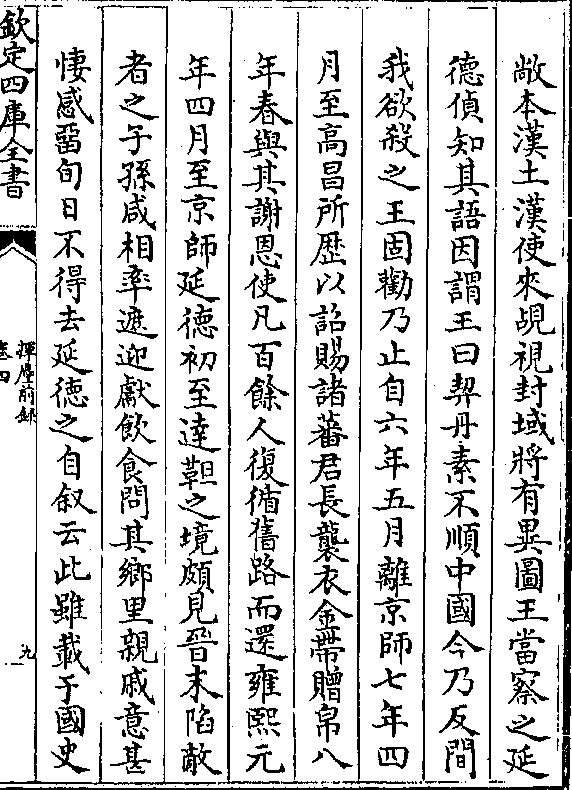 敵本漢土漢使來覘視封域將有異圖王當察之延
德偵知其語因謂王曰契丹素不順中國今乃反間
我欲殺之王固勸乃止自六年五月離京師七年四
月至高昌所歴以詔賜諸蕃君長襲衣金帶贈帛八
年春與其謝恩使凡百餘人復循舊路而還雍熙元
年四月至京師延德初至達靼之境頗見晉末陷敵
者之子孫咸相率遮迎獻飲食問其鄉里親戚意甚
悽感畱旬日不得去延德之自叙云此雖載于國史
欽定四庫全書
揮麈前録
卷四
九